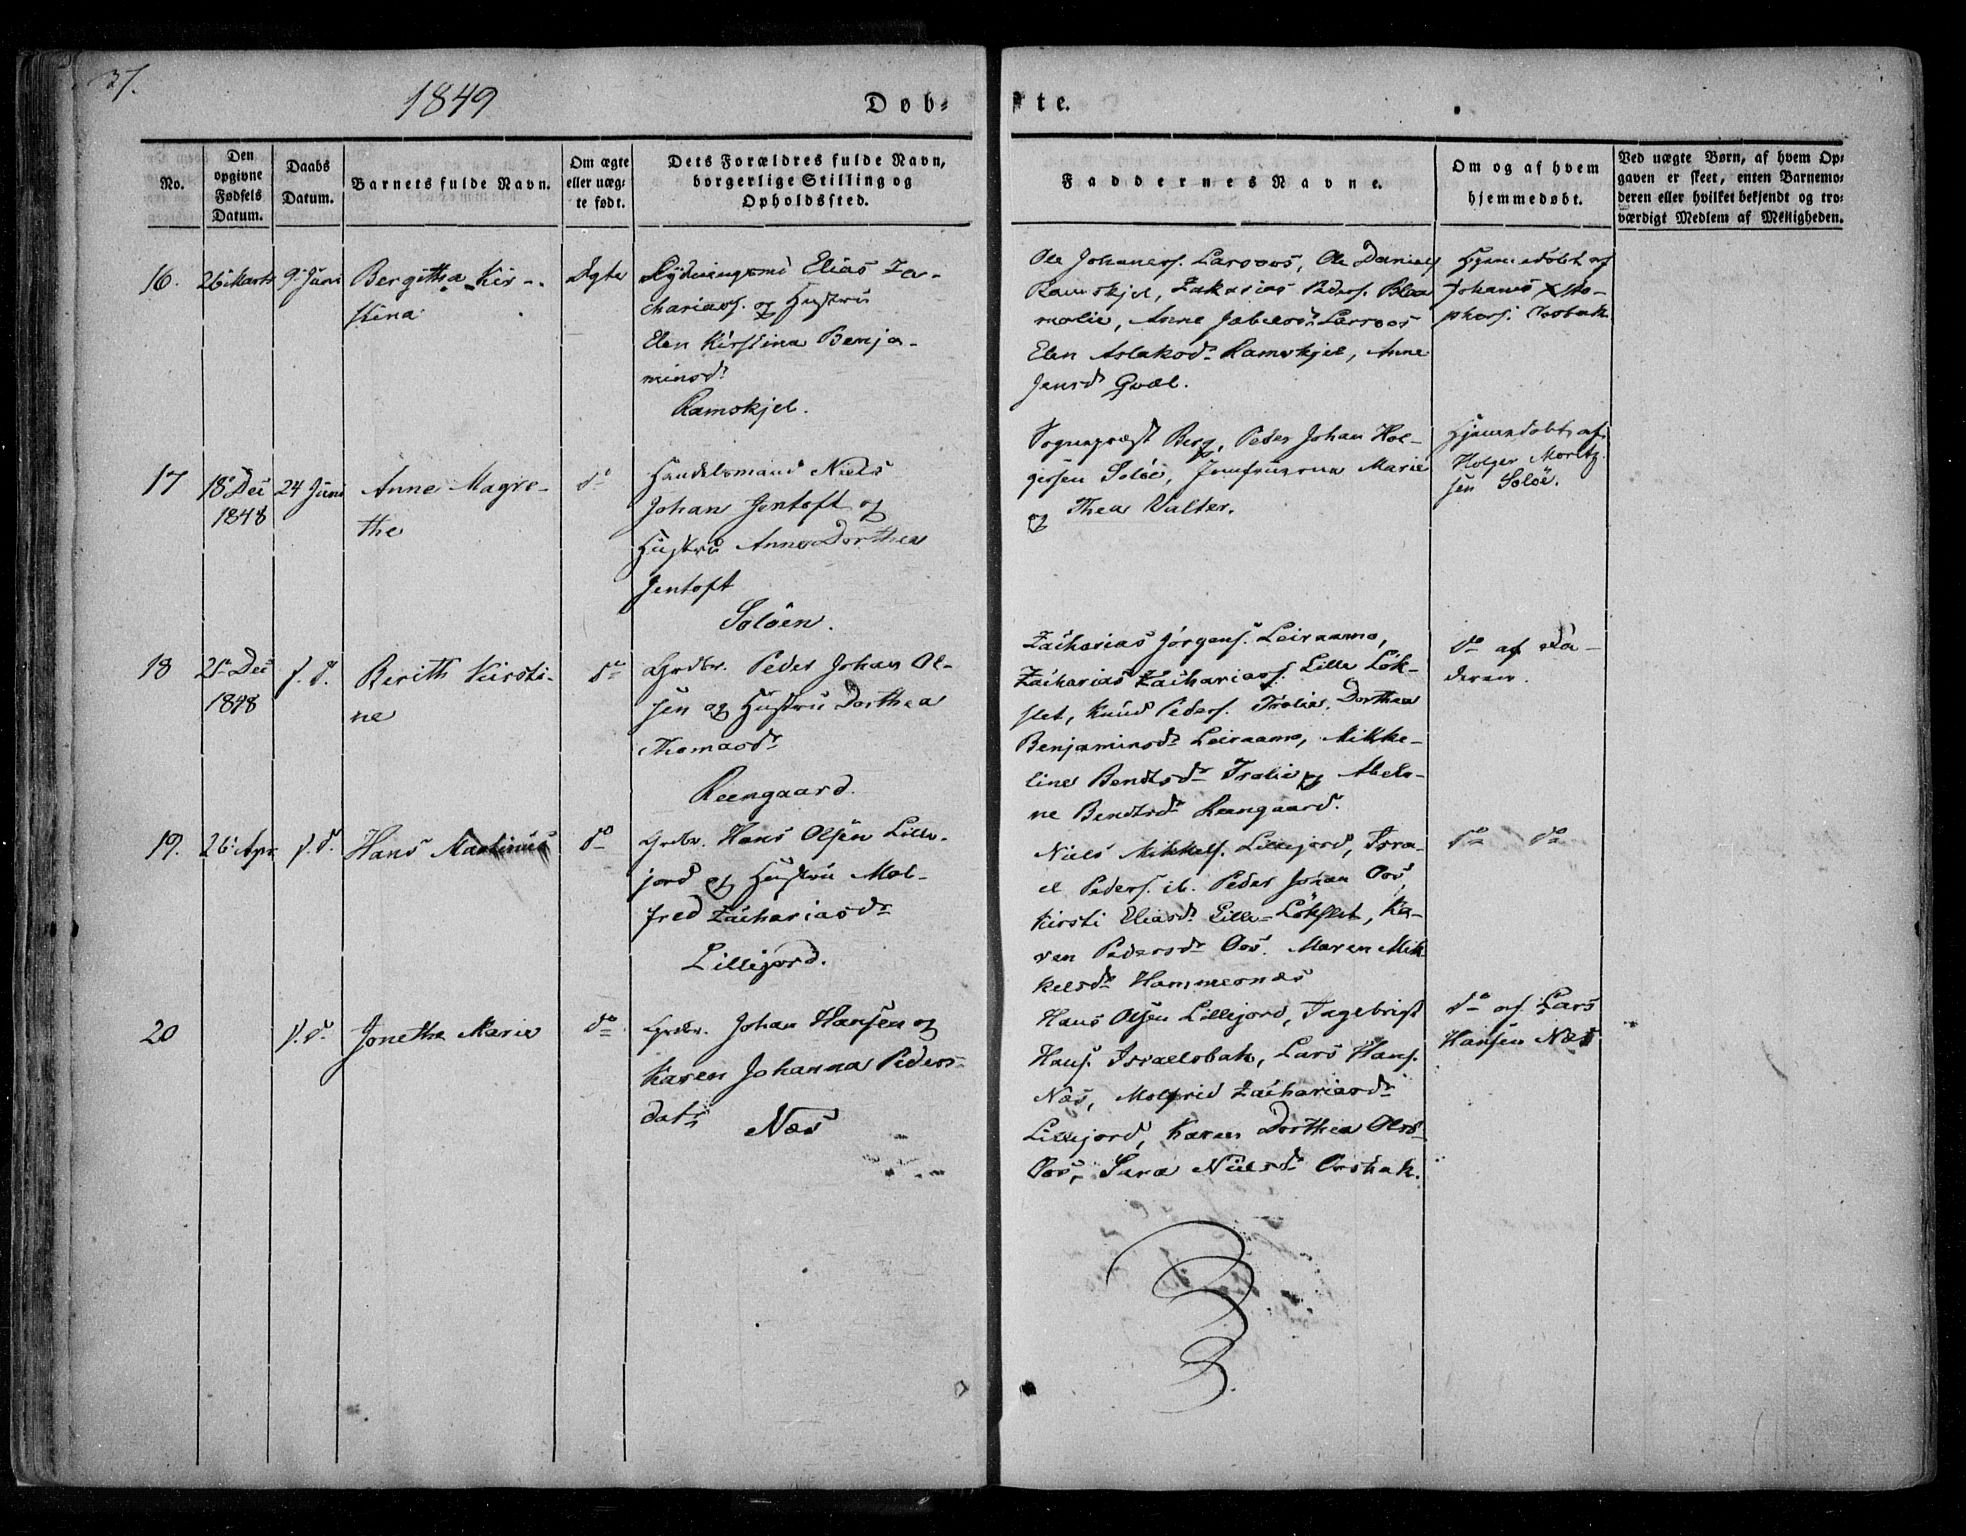 37.
1849
Døb-
te.
No.
Den
opgivne
Fødsels
Datum.
Daabs
Datum.
Barnets fulde Navn.
Om ægte
eller uæg-
te født.
Dets Forældres fulde Navn,
borgerlige Stilling og
Opholdssted.
Faddernes Navne.
Om og af hvem
hjemmedøbt.
Ved uægte Børn, af hvem Op-
gaven er skeet, enten Barnemo-
deren eller hvilket bekjendt og tro-
værdigt Medlem af Menigheden.
16.
26 Marts
9 Juni
Bergitha Kir-
stina
Ægte
Elias Za-
charias. og Hustru
Elen Kirstina Benja-
minsd.
Ramskjel.
Ole Johanes. Larsoos, Ole Daniels
Ramskjel, Zakarias Peders.
Anne Larsoos
Elen Aslaksd. Ramskjel, Anne
Jensd Qvæl.
Hjemmedøbt af
Johanes
17
18 Dec
1848
24 Juni
Anne Magre-
the
do
Handelsmand Niels
Johan Jentoft og
Hustru Anne Dorthea
Jentoft
Soløen.
Sognepræst Berg, Peder Johan Hol-
gersen Soløe, Jomfruerne Marie
og Thea Valter.
Hjemmedøbt af
Holger Moritz-
sen Soløe.
18
21 Dec
1848
s. d.
Berith Kirsti-
ne
do
Grdbr. Peder Johan Ol-
sen og Hustru Dorthea
Thomasdr
Reengaard.
Zacharias Jørgens. Leiraamo,
Zacharias Zacharias. Lille Løk-
slet, Knud Peders. Trolie, Dorthea
Benjaminsdr Leiraamo, Mikke-
line Bendtsdr Trolie og Abelo-
ne Bendtsdr Reengaard.
do af Fa-
deren.
19.
26 Apr.
s. d.
Hans Martinus
do
Grdbr. Hans Olsen Lille-
jord og Hustru Mal-
fred Zachariasdr
Lillejord.
Niels Mikkels. Lillejord, Isra-
el Peders. ib. Peder Johan Oos,
Kirsti Eliasdr Lille-Løkslet, Ka-
ren Pedersdr Oos. Maren Mik-
kelsdr Hammernæs
do do
20
s. d.
Jonetha Marie
do
Grdbr. Johan Hansen og
Karen Johanna Peders-
datr
Næs
Hans Olsen Lillejord, Ingebrigt
Hans. Israelsbak, Lars Hans.
Næs, Malfrid Zachariasdr
Lillejord, Karen Dorthea Olsd
Oos, Sara Nielsdr Oosbak.
do af Lars
Hansen Næs